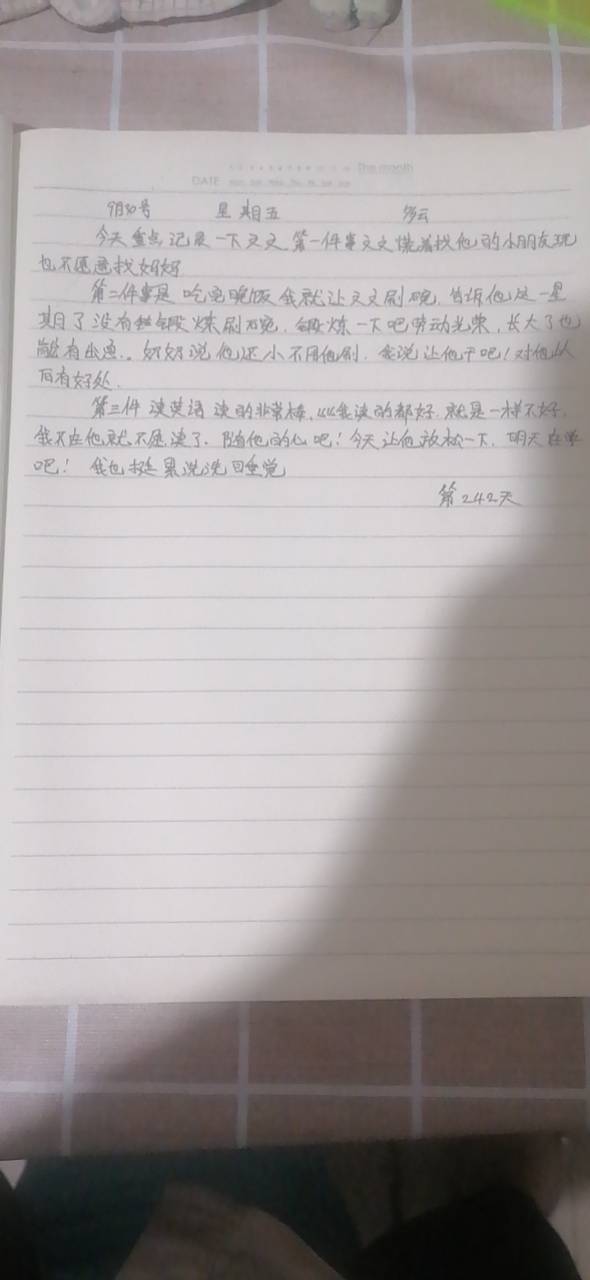 The month
DATE
9月30号 星期五 多云
今天重点记录一下文文第一件事文文慌着找他的小朋友玩
也不愿意找奶奶
第二件事是吃完晚饭我就让文文刷碗,告诉他这一星
期了没有锻炼刷碗,锻炼一下吧劳动光荣,长大了也
能有出息..奶奶说他还小不用他刷,我说让他干吧!对他以
后有好处.
第三件读英语读的非常棒,比我读的都好.就是一样不好,
我不在他就不愿读了.随他的心吧!今天让他放松一下,明天在学
吧!我也挺累洗洗回睡觉
第242天